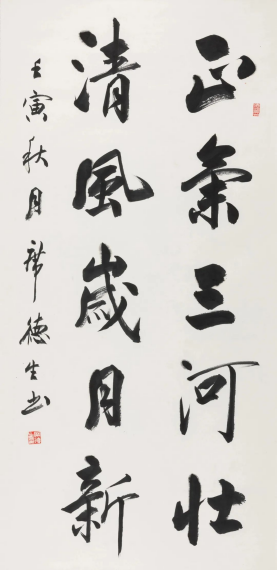 正氣三河壯
清風歲月新
壬寅秋月席德生书